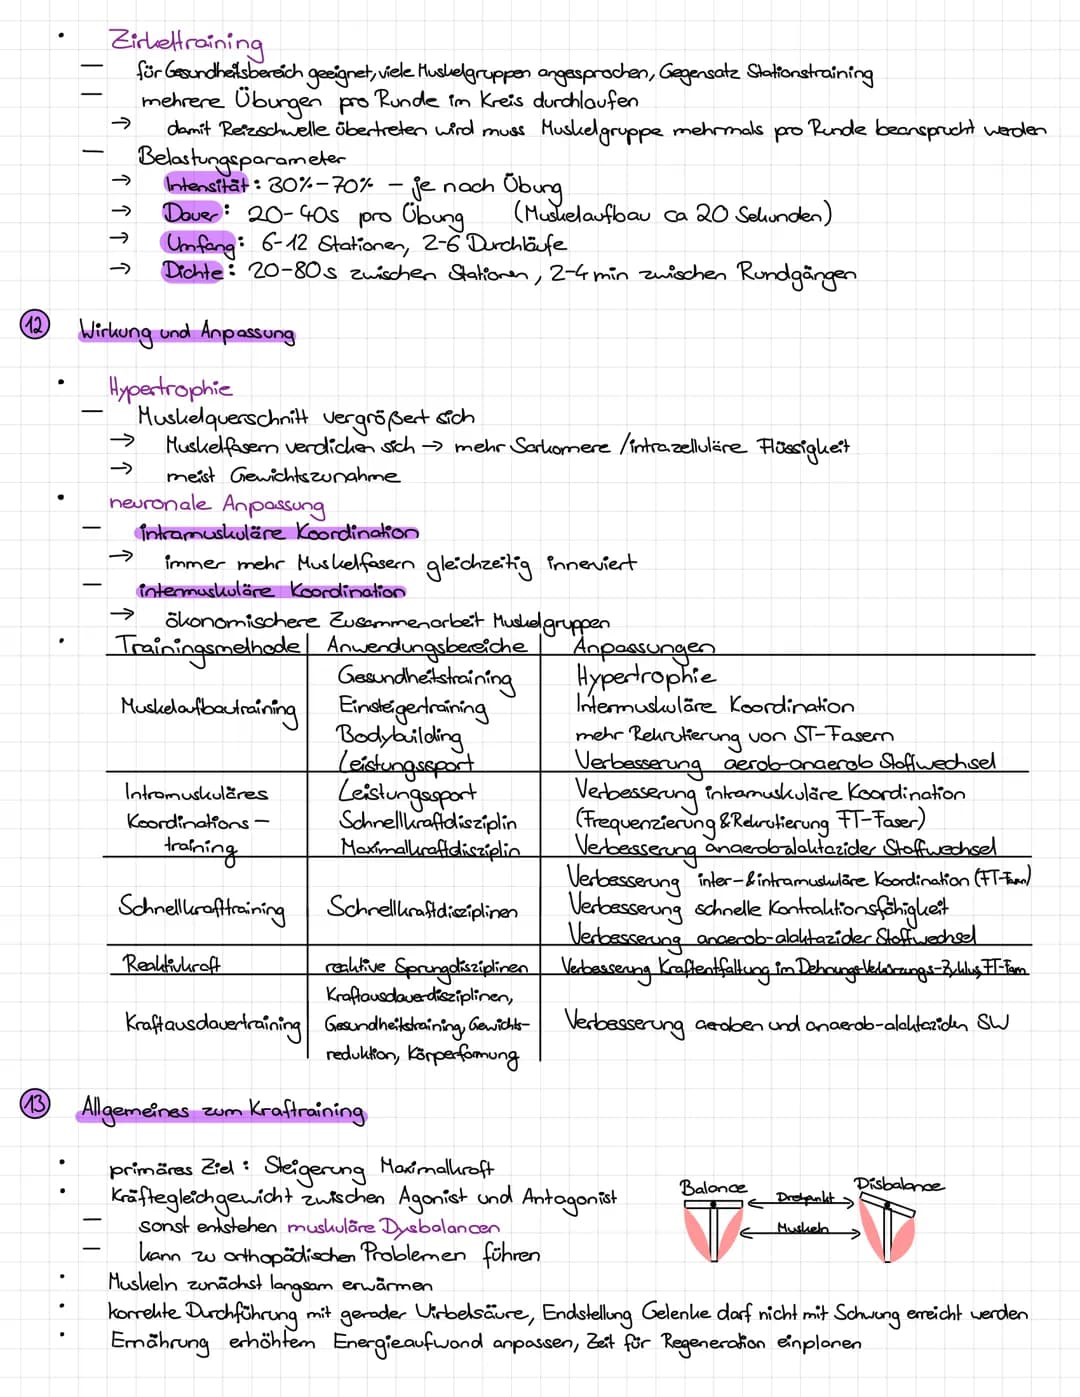 • Zirkeltraining
— für Gesundheitsbereich geeignet, viele Muskelgruppen angesprochen, Gegensatz Stationstraining
— mehrere Übungen pro Runde im Kreis durchlaufen
→ damit Reizschwelle übertreten wird muss Muskelgruppe mehrmals pro Runde beansprucht werden
— Belastungsparameter
→ Intensität: 30%-70% - je nach Übung
→ Dauer: 20-40s pro Übung (Muskelaufbau ca 20 Sekunden)
→ Umfang: 6-12 Stationen, 2-6 Durchläufe
→ Dichte: 20-80s zwischen Stationen, 2-4 min zwischen Rundgängen
12 Wirkung und Anpassung
• Hypertrophie
— Muskelquerschnitt vergrößert sich
→ Muskelfasern verdicken sich → mehr Sarkomere /intrazelluläre Flüssigkeit
→ meist Gewichtszunahme
• neuronale Anpassung
— intramuskuläre Koordination
→ immer mehr Muskelfasern gleichzeitig innerviert
— intermuskuläre Koordination
→ ökonomischere Zusammenarbeit Muskelgruppen
• Trainingsmethode Anwendungsbereiche Anpassungen
Gesundheitstraining Hypertrophie
Muskelaufbautraining Einsteigertraining Intermuskuläre Koordination
Bodybuilding mehr Rekrutierung von ST-Fasern
Leistungssport Verbesserung aerob-anaerob Stoffwechsel
Intramuskuläres Leistungssport Verbesserung intramuskuläre Koordination
Koordinations- Schnellkraftdisziplin (Frequenzierung & Rekrutierung FT-Faser)
training Maximalkraftdisziplin Verbesserung anaerob-alaktazider Stoffwechsel
Verbesserung inter-&intramuskuläre Koordination (FT-Fasern)
Schnellkrafttraining Schnellkraftdisziplinen Verbesserung schnelle Kontraktionsfähigkeit
Verbesserung anaerob-alaktazider Stoffwechsel
Reaktivkraft reaktive Sprungdisziplinen Verbesserung Kraftentfaltung im Dehnungs-Verkürzungs-Zyklus, FT-Fasern
Kraftausdauerdisziplinen,
Kraftausdauertraining Gesundheitstraining, Gewichts- Verbesserung aeroben und anaerob-alaktaziden SW
reduktion, Körperformung
13 Allgemeines zum Kraftraining
• primäres Ziel: Steigerung Maximalkraft
• Kräftegleichgewicht zwischen Agonist und Antagonist
— sonst entstehen muskuläre Dysbalancen
— kann zu orthopädischen Problemen führen
Balance Drehpunkt Disbalance
Muskeln
• Muskeln zunächst langsam erwärmen
• korrekte Durchführung mit gerader Wirbelsäure, Endstellung Gelenke darf nicht mit Schwung erreicht werden
• Ernährung erhöhtem Energieaufwand anpassen, Zeit für Regeneration einplanen